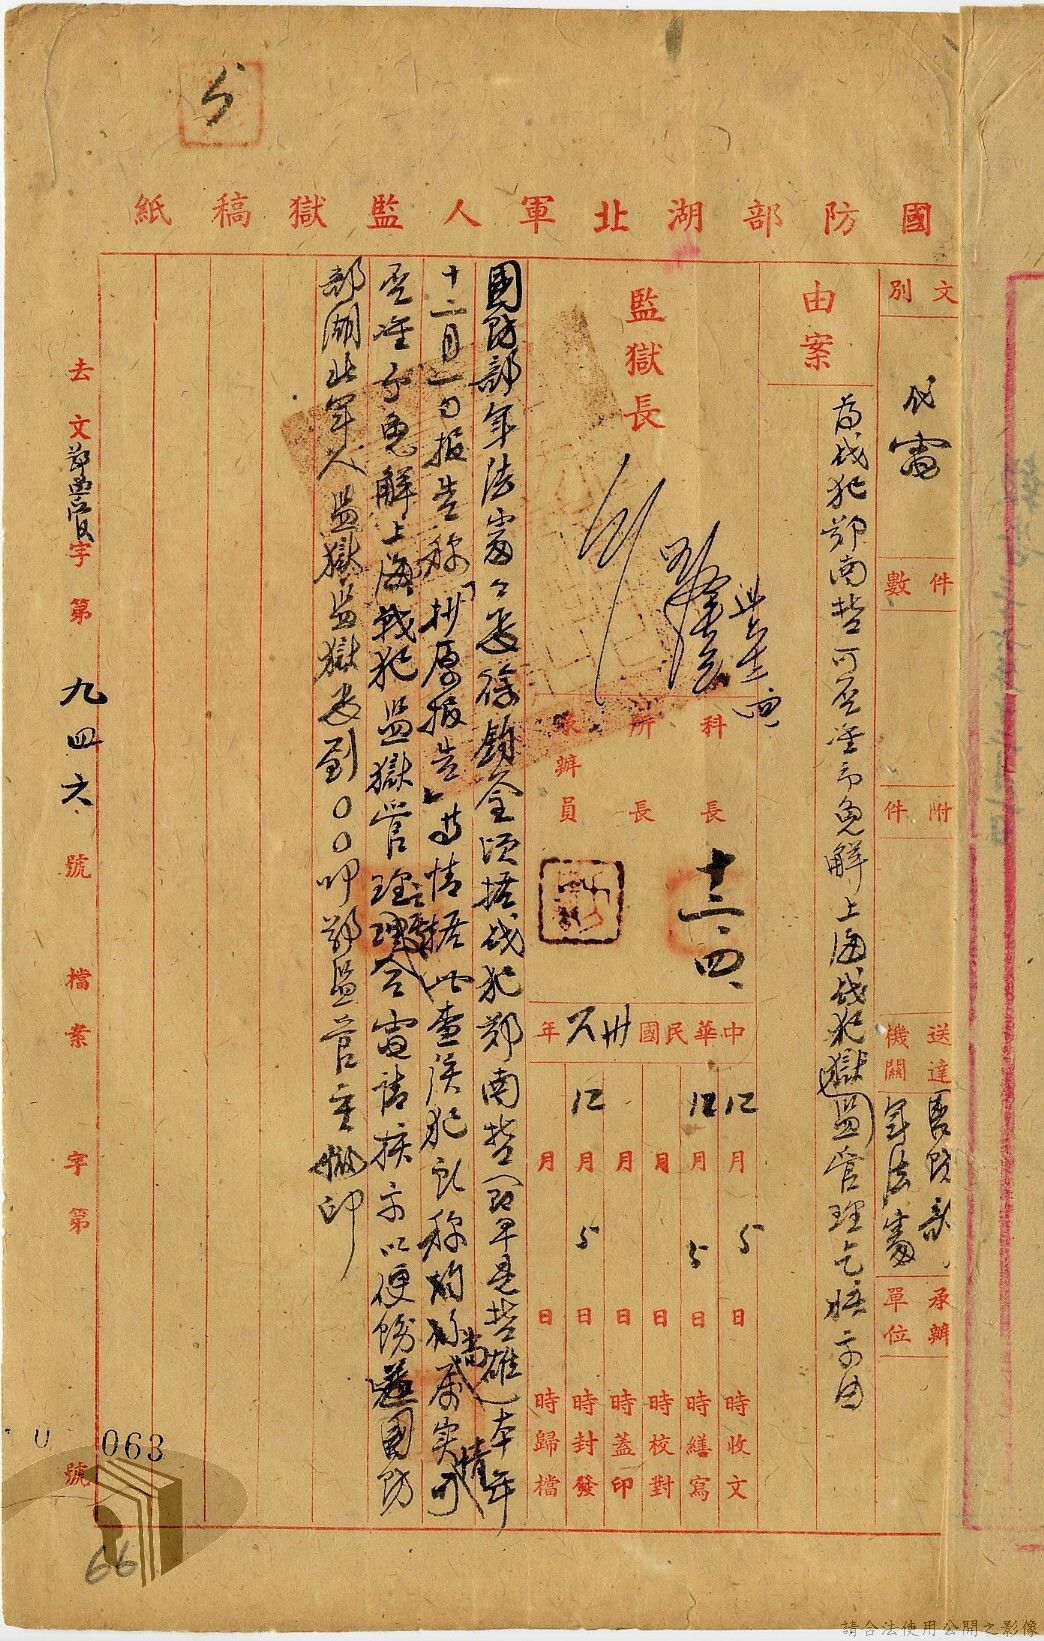 國防部湖北軍人監獄稿紙
文別
代電
件數
附件
送達機關
國防部軍法處
承辦單位
案由
為戰犯鄭南哲可否准予免解上海戰犯監獄管理乞核示由
監獄長
科長
所長
承辦員
十二、四、
中華民國卅六年
12月5日時收文
12月5日時繕寫
月日時校對
月日時蓋印
12月5日時封發
月日時歸檔
國防部軍法處處長徐鈞鑒頃據戰犯鄭南哲本年
十二月一日報告稱「抄原報告」等情據此查該犯所稱尚屬實情可
否准予免解上海戰犯監獄管理之處理合電請核示以便飭遵國防
部湖北軍人監獄監獄長劉〇〇叩
去文字第九四六號
檔案字第號
063
66
請合法使用公開之影像